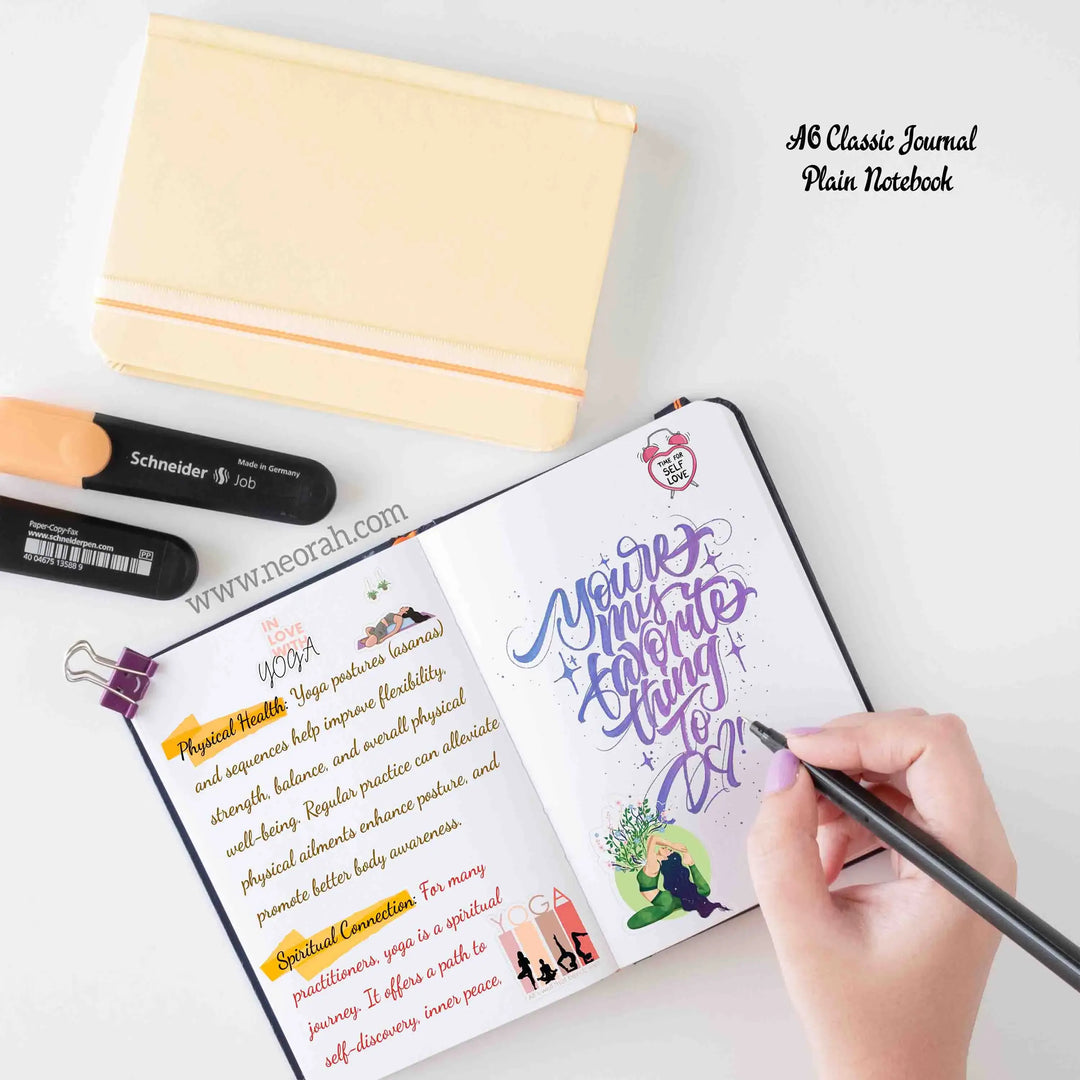 A6 Classic Journal
Plain Notebook
Schneider Job
Made in Germany
Paper-Copy-Fax
www.schneiderpen.com
PP
40 04675 13588 9
www.neorah.com
TIME FOR
SELF
LOVE
You're
my
favorite
thing
To
Do!
IN
LOVE
WITH
YOGA
Physical Health: Yoga postures (asanas)
and sequences help improve flexibility,
strength, balance, and overall physical
well-being. Regular practice can alleviate
physical ailments enhance posture, and
promote better body awareness.
Spiritual Connection: For many
practitioners, yoga is a spiritual
journey. It offers a path to
self-discovery, inner peace,
YOGA